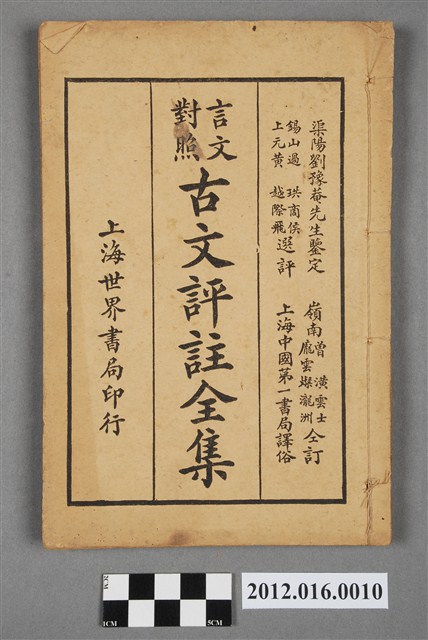 渠陽劉豫菴先生鑒定
錫山過 珙商侯
上元黃 越際飛
選評
嶺南曾 潢雲士
龐雲燦瀧洲
仝訂
上海中國第一書局譯俗
言文
對照
古文評註全集
上海世界書局印行
2CM
1CM
5CM
2012.016.0010